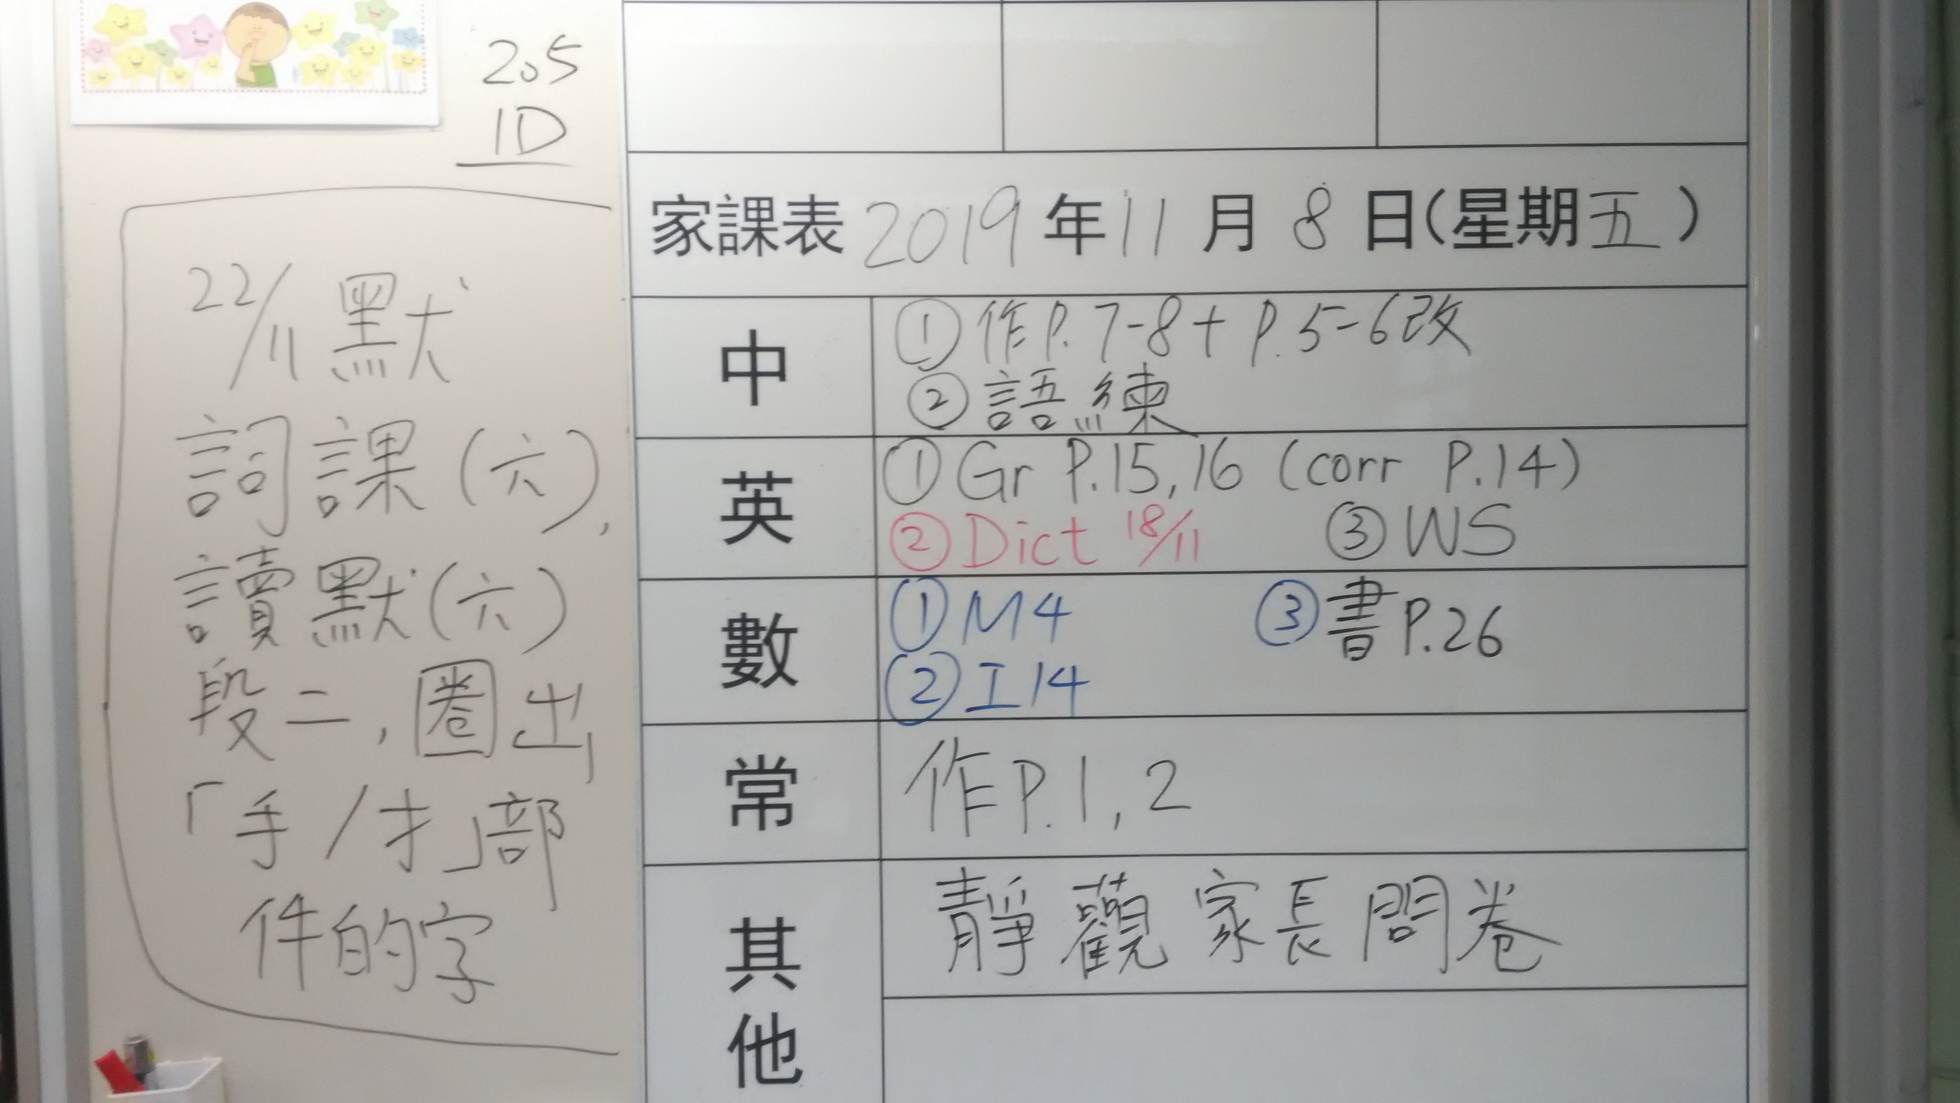 205
1D
22/11 默
詞課(六),
讀默(六)
段二,圈出
「手/扌」部
件的字
家課表 2019 年 11 月 8 日(星期五)
中
①作P.7-8+P.5-6改
②語練
英
①Gr P.15,16 (corr P.14)
②Dict 18/11 ③WS
數
①M4 ③書P.26
②I14
常
作P.1,2
其他
靜觀家長問卷